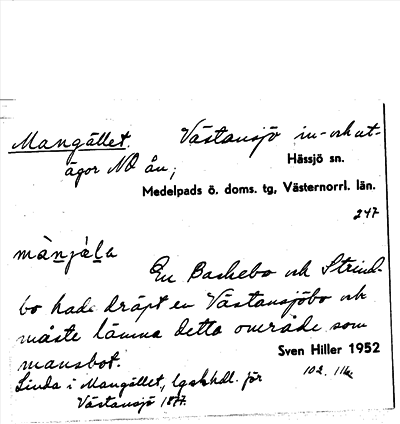 Mangället. Västansjö in- och ut-
ägor NO ån;
Hässjö sn.
Medelpads ö. doms. tg, Västernorrl. län.
247
En Backebo och Strind-
bo hade dräpt en Västansjöbo och
måste lämna detta område som
mansbot.
Sven Hiller 1952
Linda i Mangället, lgskhdl. för
Västansjö 1877.
102